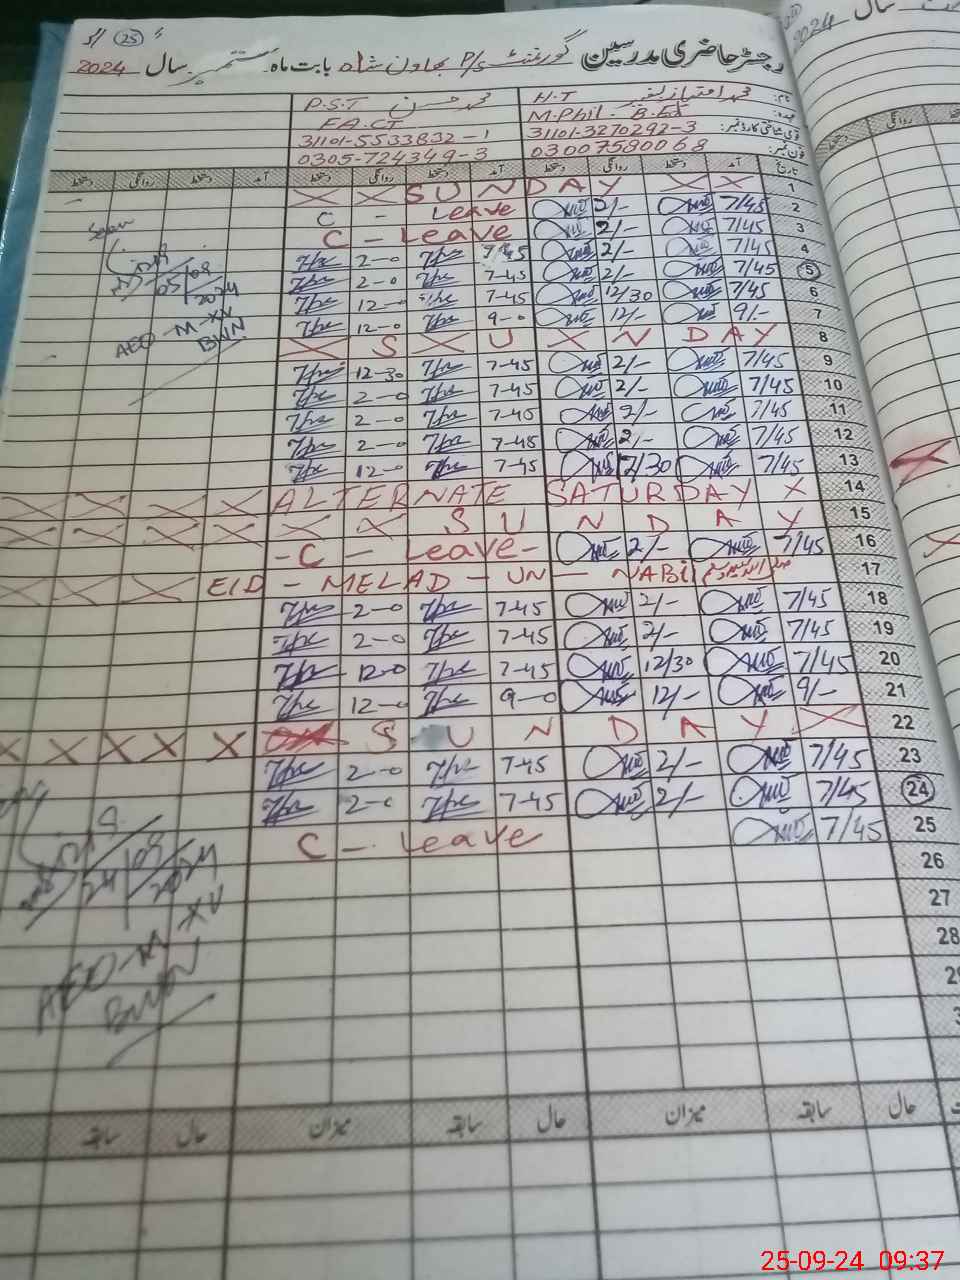 25
رجسٹر حاضری مدرسین گورنمنٹ P/S بہاون شاہ بابت ماہ ستمبر سال 2024
نام: محمد امتیاز H.T محمد حسن P.S.T
عہدہ: M.Phil - B.Ed FA.CT
قومی شناختی کارڈ نمبر: 31101-3270292-3 31101-5533832-1
فون نمبر: 03007580068 0305-724349-3
تاریخ آمد دستخط روانگی دستخط آمد دستخط روانگی دستخط آمد دستخط روانگی دستخط
1 X X SUNDAY X X
2 7/45 2/- C - Leave
3 7/45 2/- C - Leave
4 7/45 2/- 7-45 2-0
5 7/45 2/- 7-45 2-0
6 7/45 12/30 7-45 12-0
7 9/- 12/- 9-0 12-0
8 X S X U X N DAY
9 7/45 2/- 7-45 12-30
10 7/45 2/- 7-45 2-0
11 7/45 2/- 7-45 2-0
12 7/45 2/- 7-45 2-0
13 7/45 12/30 7-45 12-0
14 X X X X ALTERNATE SATURDAY X
15 X X X X X X S U N D A Y
16 7/45 2/- - C - Leave -
17 X X X EID - MELAD - UN - NABI
18 7/45 2/- 7-45 2-0
19 7/45 2/- 7-45 2-0
20 7/45 12/30 7-45 12-0
21 9/- 12/- 9-0 12-0
22 X X X X X S U N D A Y X
23 7/45 2/- 7-45 2-0
24 7/45 2/- 7-45 2-0
25 7/45 C - Leave
26
27
28
Seen
05/09/2024
AEO-M-XV
BWN
24/09/2024
AEO-M-XV
BWN
حال سابقہ میزان حال سابقہ میزان حال سابقہ
2024 سال
روانگی دستخط
25-09-24 09:37